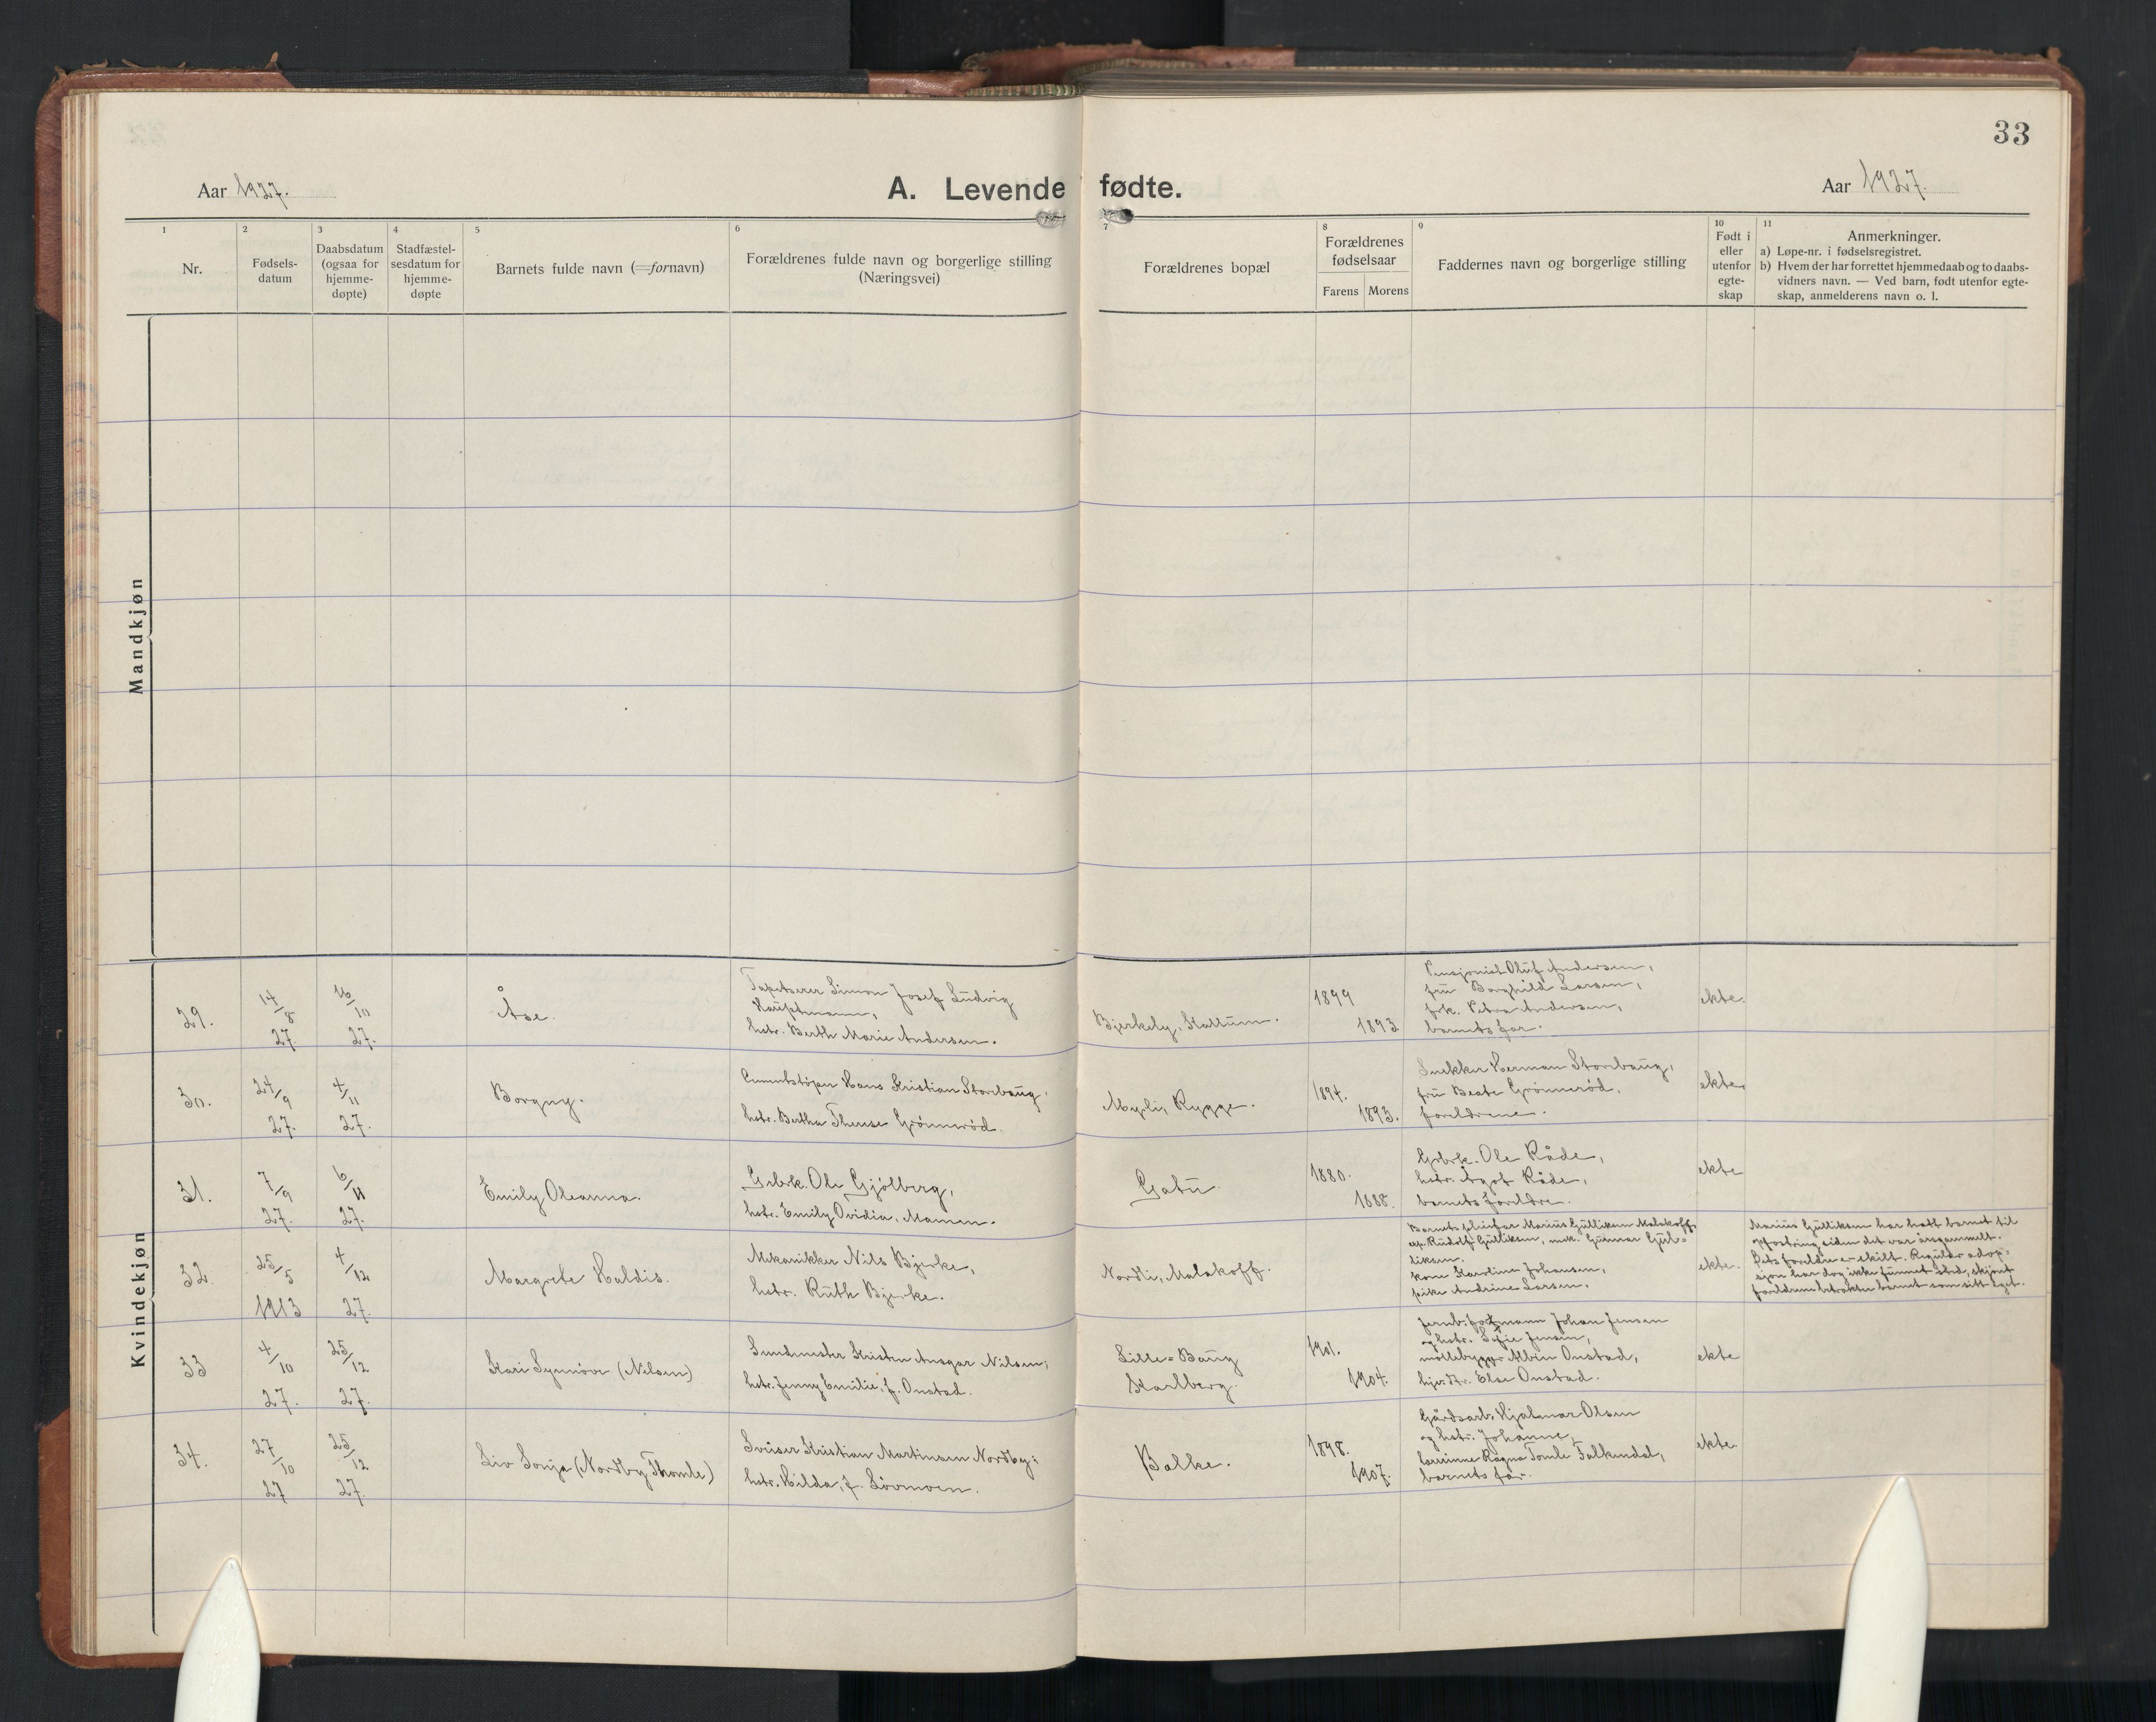 33
Aar 1927.
A. Levende fødte.
Aar 1927.
1
2
3
4
5
6
7
8
9
10
11
Nr.
Fødsels-
datum
Daabsdatum
(ogsaa for
hjemme-
døpte)
Stadfæstel-
sesdatum for
hjemme-
døpte
Barnets fulde navn (=fornavn)
Forældrenes fulde navn og borgerlige stilling
(Næringsvei)
Forældrenes bopæl
Forældrenes
fødselsaar
Farens Morens
Faddernes navn og borgerlige stilling
Født i
eller
utenfor
egte-
skap
Anmerkninger.
a) Løpe-nr. i fødselsregistret.
b) Hvem der har forrettet hjemmedaab og to daabs-
vidners navn. — Ved barn, født utenfor egte-
skap, anmelderens navn o. l.
Mandkjøn
Kvindekjøn
29.
14/8
27.
16/10
27.
Åse.
Tapetserer Simon Josef Ludvig
Hauptmann,
hstr. Berth Marie Andersen.
Bjerkely, Kallum.
1899
1893
Pensjonist Oluf Andersen,
fru Borghild Larsen,
frk. Petra Andersen,
barnets far.
ekte.
30.
24/9
27.
4/11
27.
Borgny.
Cementstøper Hans Kristian Storebaug,
hstr. Bertha Therese Grønnerød.
Myrli, Rygge.
1894.
1893.
Snekker Herman Storebaug,
fru Beate Grønnerød,
foreldrene.
ekte
31.
7/9
27.
6/11
27.
Emily Oleanna.
Grbrk. Ole Gjølberg,
hstr. Emily Ovidia, Mamen.
Gatu.
1880.
1888.
Grbrk. Ole Råde,
hstr. Ågot Råde,
barnets foreldre.
ekte
32.
25/5
1913
4/12
27.
Margrete Haldis.
Mekanikker Nils Bjerke,
hstr. Ruth Bjerke.
Nordli, Malakoff.
Barnets pleiefar Marius Gulliksen Malakoff,
Rudolf Gulliksen, mek. Gunnar Gul=
liksen.
kone Karoline Johansen,
pike Andrine Larsen.
ekte.
Marius Gulliksen har hatt barnet til
opfostring siden det var årsgammelt.
Dets foreldre er skilt. Regulær adop-
sjon har dog ikke funnet sted, skjønt
foreldrene betrakter barnet som sitt eget.
33
4/10
27.
25/12
27.
Kari Synnøve (Nilsen)
Hstr. Jenny Emilie, f. Onstad.
Lille=Baug
Karlberg.
1901.
1904.
Jernb.formann Johan Jensen
og hstr. Sofie Jensen,
møllebygger Albin Onstad,
Else Onstad.
ekte
34.
27/10
27
25/12
27.
Liv Sonja (Nordby Thomle)
Sveiser Kristian Martinsen Nordby;
hstr. Hilda, f. Løvmoen.
Balke.
1898.
1907.
Gårdsarb. Hjalmar Olsen
og hstr. Johanne,
lærerinne Ragna Tomle Falkendal,
barnets far.
ekte